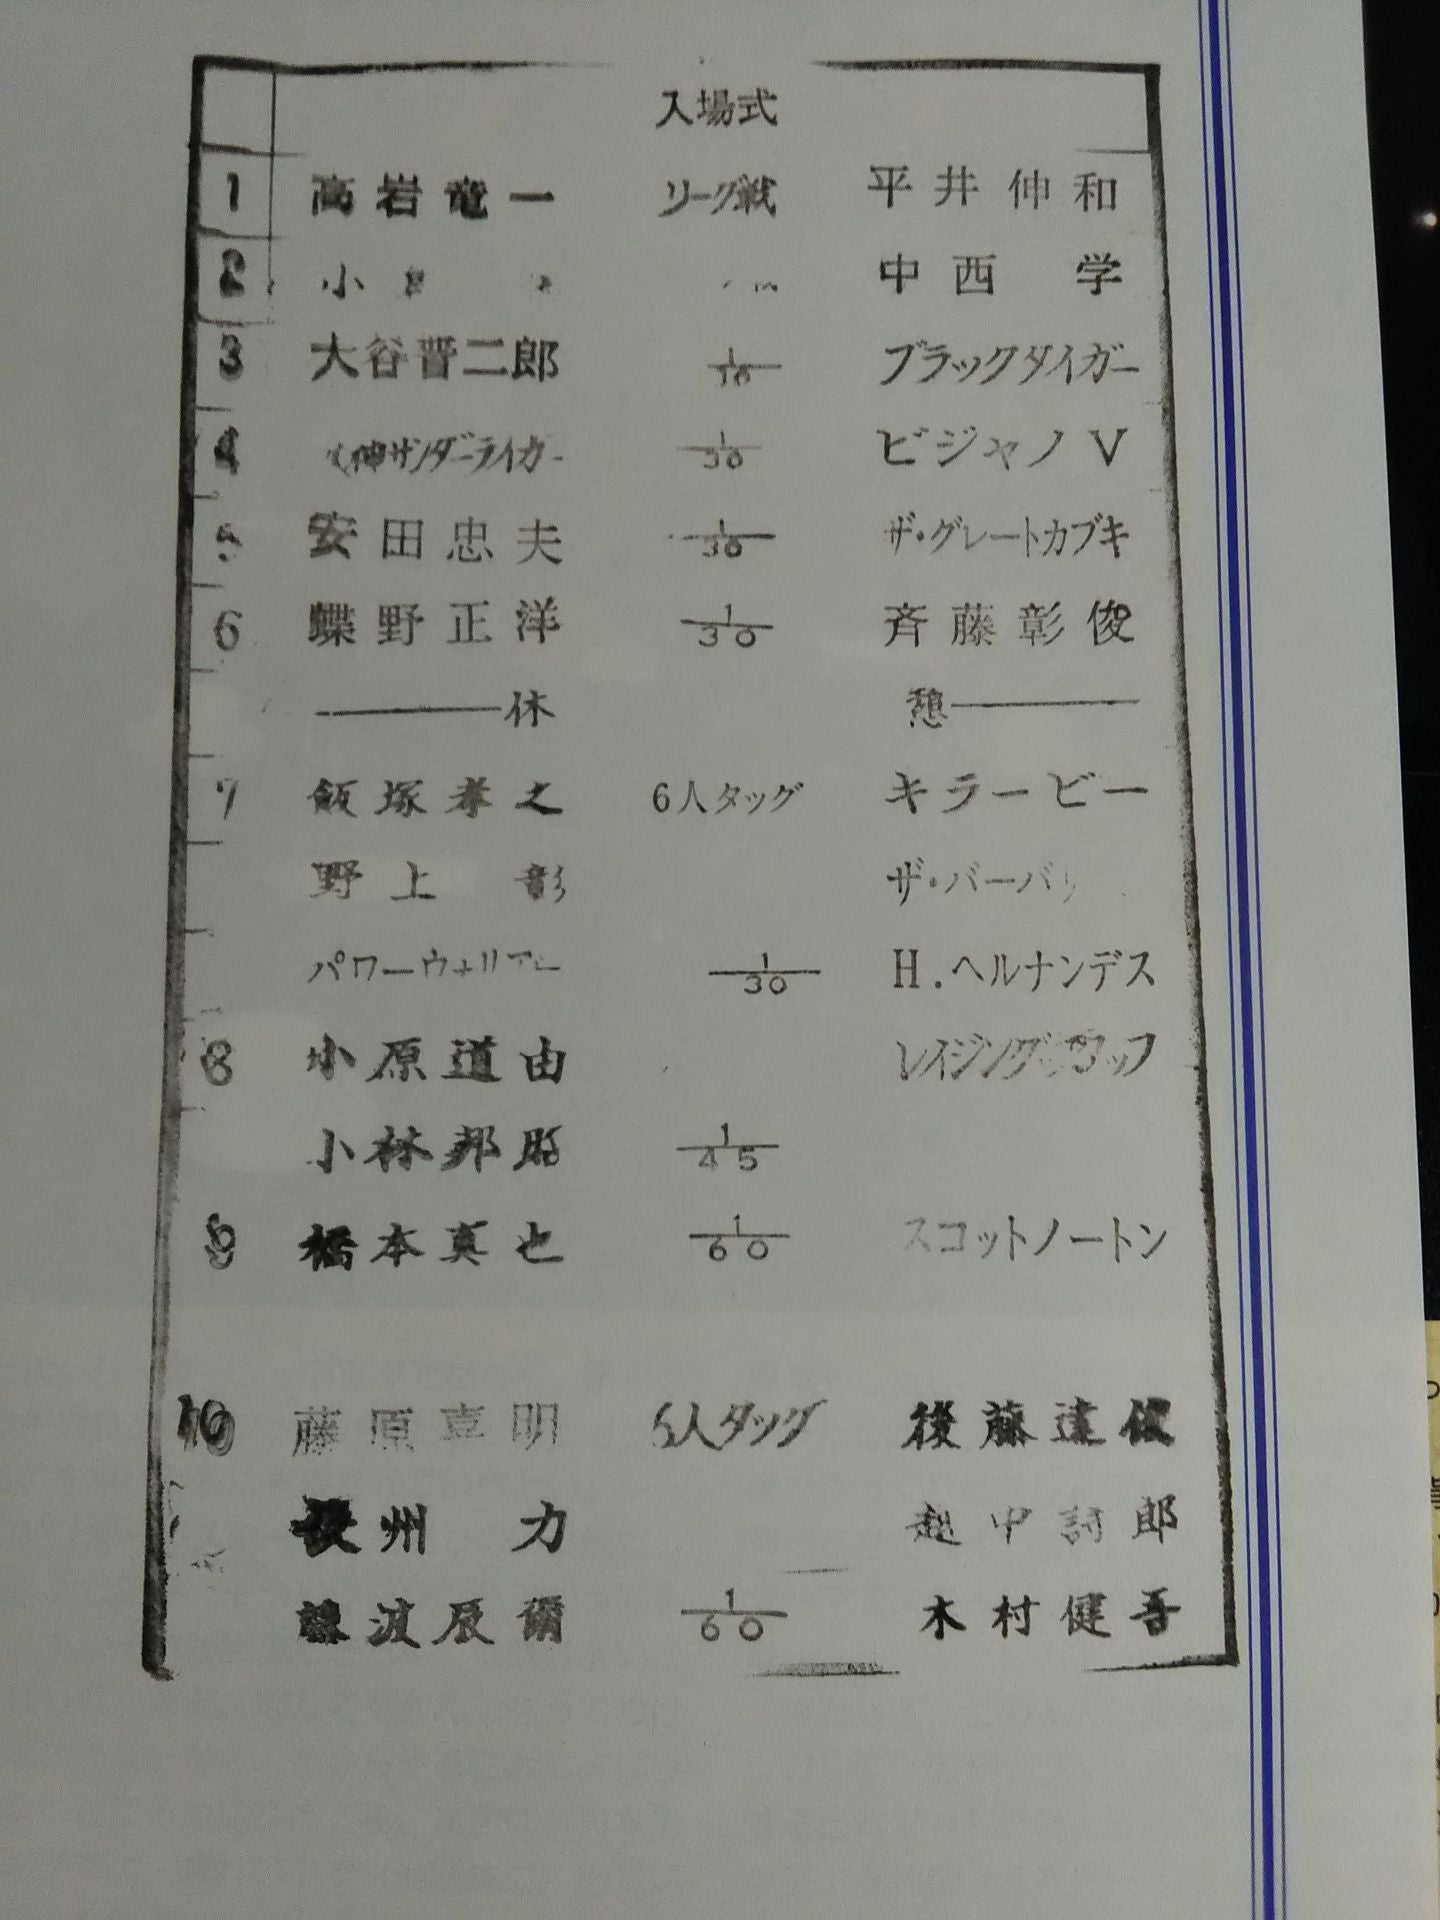 入場式
1 高岩竜一 リーグ戦 平井伸和
2 小 中西 学
3 大谷晋二郎 1/30 ブラックタイガー
4 神サンダーライガー 1/30 ビジャノV
5 安田忠夫 1/30 ザ・グレートカブキ
6 蝶野正洋 1/30 斉藤彰俊
休 憩
7 飯塚孝之 6人タッグ キラービー
野上 彰 ザ・バーバリ
パワーウォリアー 1/30 H.ヘルナンデス
8 小原道由 レイジング
小林邦昭 1/45
9 橋本真也 1/60 スコットノートン
10 藤原喜明 6人タッグ 後藤達俊
長州 力 越中詩郎
藤波辰爾 1/60 木村健吾